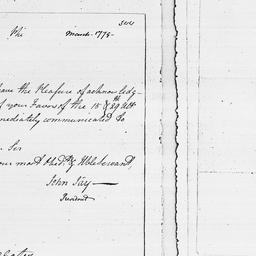 Phi March 1779
have the Pleasure of acknowledg-
of your Favors of the 15 & 29th Ult
mediately communicated to
Sir
your most Obedt. & Hble Servant,
John Jay
President